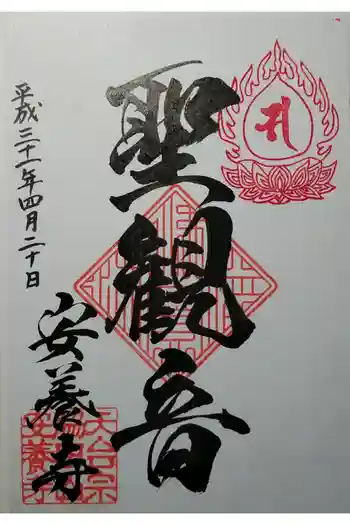 聖観音
平成三十一年四月二十日
安養寺
天台宗